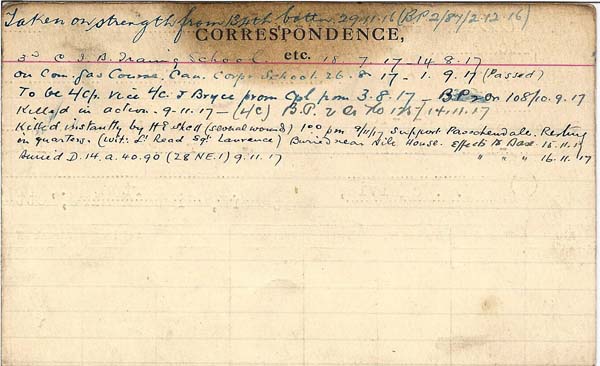 Taken on strength from 134th battn. 29-11-16 (BP 2/87/2-12-16)
CORRESPONDENCE,
etc.
3rd C. I. B. Training School 18-7-17-14-8-17
on Com. gas Course. Can. Corps School. 26-8-17-1.9.17 (Passed)
To be L/Cp. vice L/C. J Bryce prom Cpl from 3-8-17 - 108/10.9.17
Killed in action - 9-11-17 - (L/C) B.P. 14-11-17
Killed instantly by H E shell (several wounds) 1 00 pm 9/11/17 Support Passchendale. Resting
in quarters. (Wit: Lt Read Sgt. Lawrence) Buried near Nile House. Effects to Base 15.11.17
Buried D.14.a.40.90 (28 NE.1) 9.11.17 " " " 16.11.17